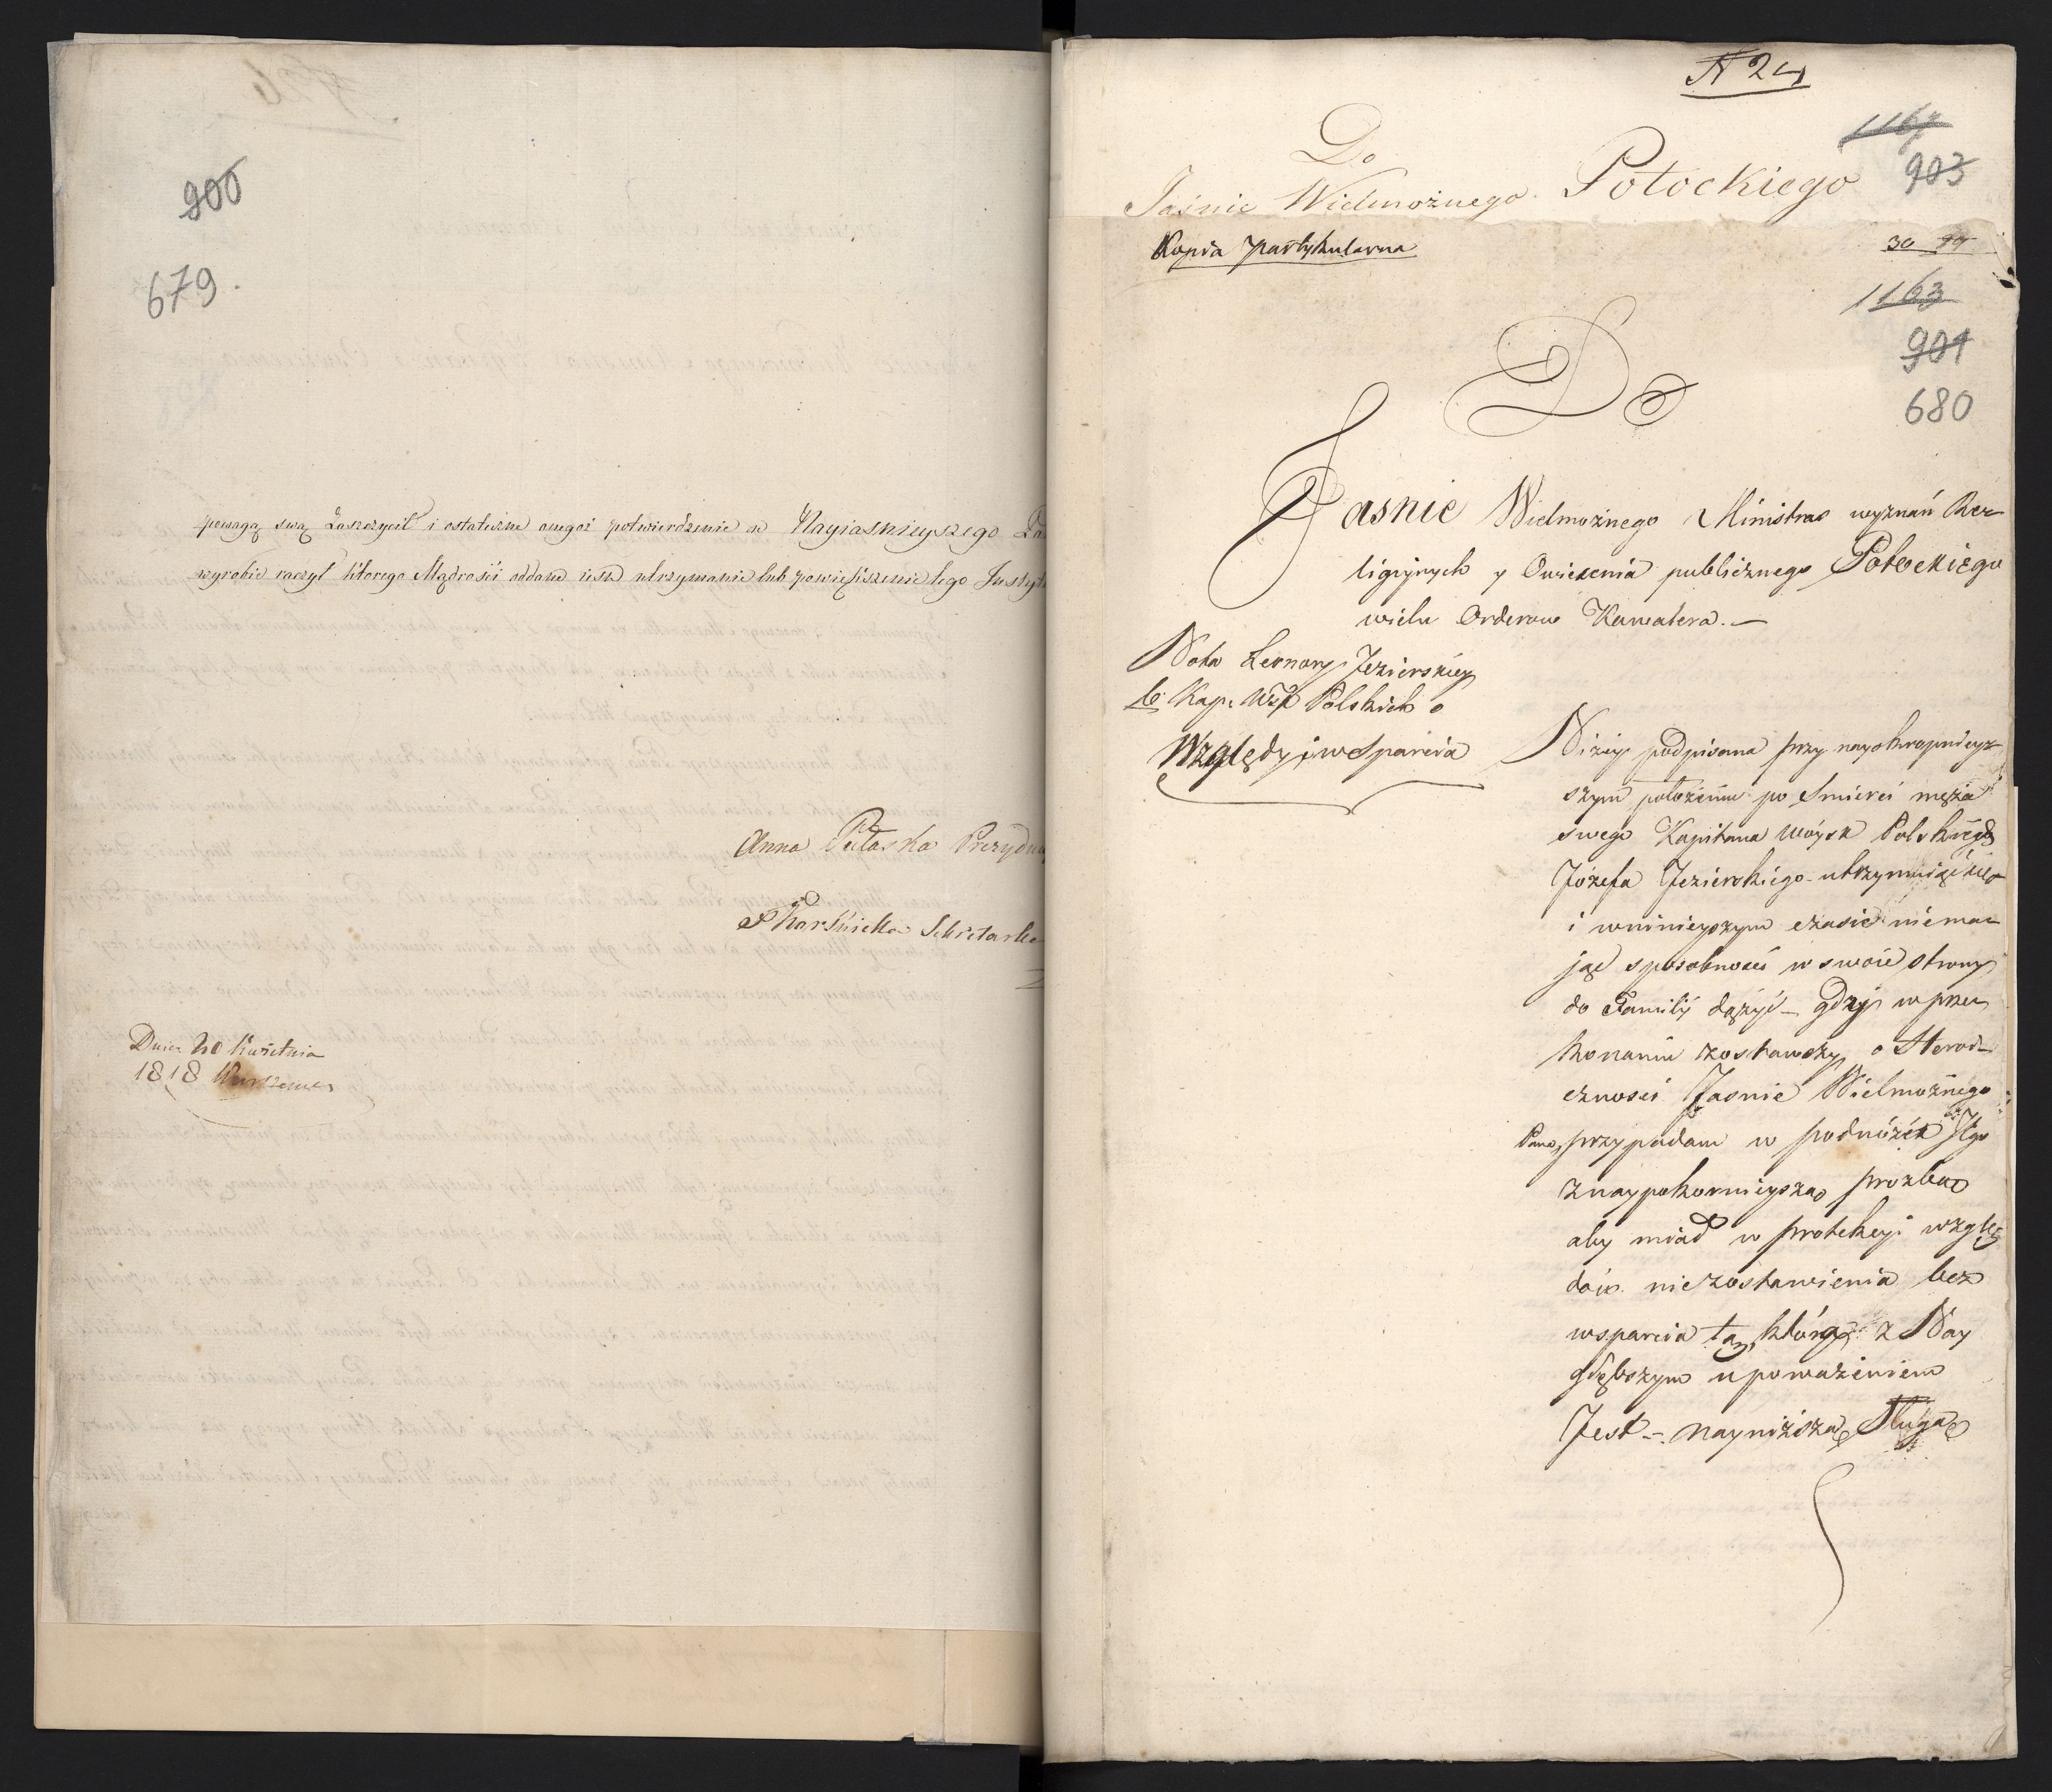 900
679.
powagą swą Zaszczycił i ostateczne onegoż potwierdzenie u Nayiasnieyszego
wyrobić raczył którego Mądrości oddane iest utrzymanie lub powiększenie tego
Anna Pułaska
Karśnicka Sekretarka
Dnia 20 Kwietnia
1818 Warszawa
N 24
1167
Do
903
Jaśnie Wielmożnego Potockiego
Kopia partykularna
30
1163
901
680
Do
Jasnie Wielmożnego Ministra wyznań Re=
ligiynych y Oswiecenia publicznego Potockiego
wielu Orderow Kawalera.—
Nota Leonory Jezierskiey
Kap: Wsk Polskich o
Względy i wsparcia
Niżey podpisana przy nayokropnieysz=
szym położeniu po Smierci męża
swego Kapitana Woysk Polskich
Józefa Jezierskiego
i wninieyszym czasie niema=
jąc sposobności w swoie strony
do Familij dążyć — gdzy w prze
konaniu zostawszy o
czności Jasnie Wielmożnego
Pana, przypadam w podnóżek Jgo
znaypokornieyszą prozbą
aby miał w protekcyi wzglę
dów niezostawienia bez
wsparcia tą, którą z Nay
głębszym upoważeniem
Jest –. Nayniższą Sługą